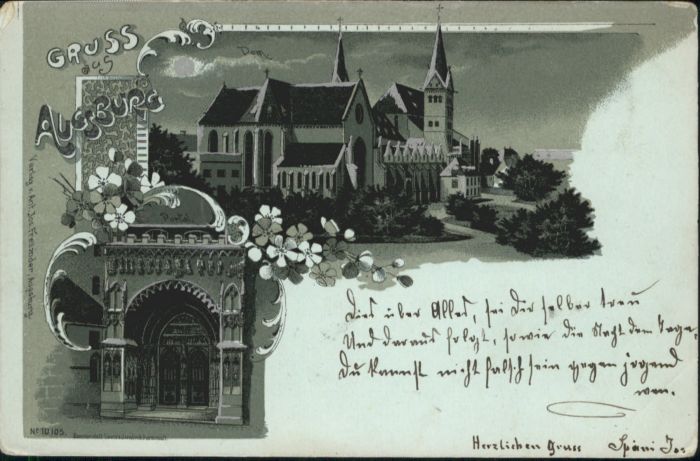 GRUSS
aus
AUGSBURG
Dom
Portal
Verlag v.
Augsburg
Nº 10105.
Dies über Alles, sei Dir selber treu
Und daraus folgt, sowie die Nacht dem Tage,
Du kannst nicht falsch sein gegen jegend
wen.
Herzlichen Gruss
Späni Jos